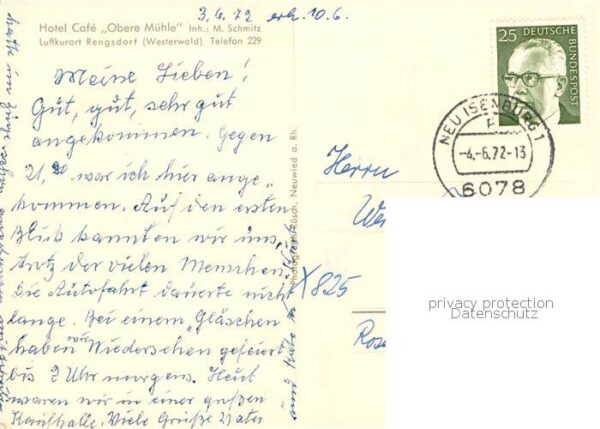 3.6.72 erh. 10.6.
Hotel Café „Obere Mühle" Inh.: M. Schmitz
Luftkurort Rengsdorf (Westerwald) Telefon 229
Meine Lieben!
Gut, gut, sehr gut
angekommen. Gegen
21,20 war ich hier ange-
kommen. Auf den ersten
Blick kannten wir uns,
trotz der vielen Menschen.
Die Autofahrt dauerte nicht
lange. Bei einem „Gläschen
haben wir Wiedersehen gefeiert
bis 2 Uhr morgens. Heut
waren wir in einer großen
Kaufhalle. Viele Grüße Vater
und
hatte im Zuge
Neuwied a. Rh.
25 DEUTSCHE BUNDESPOST
NEU ISENBURG 1
-4.-6.72-13
6078
Herrn
We
X825
Ros
privacy protection
Datenschutz